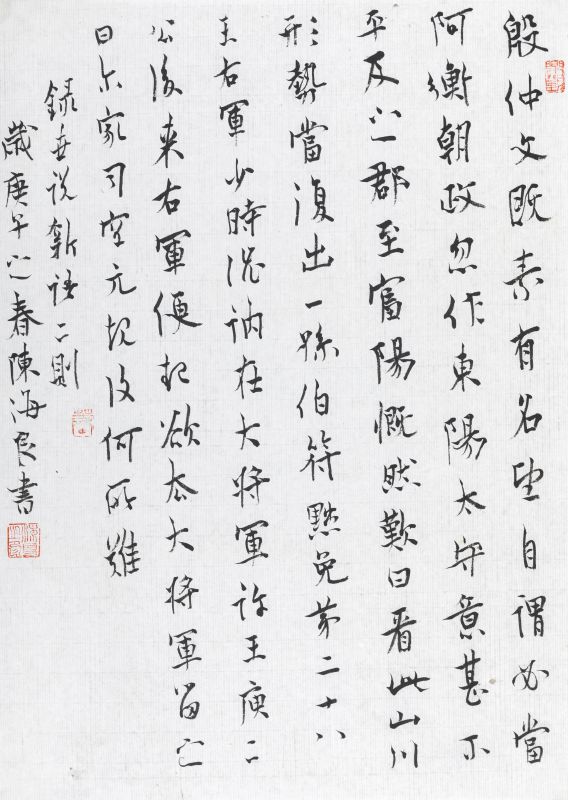 殷仲文既素有名望自謂必當
阿衡朝政忽作東陽太守意甚不
平及之郡至富陽慨然歎曰看此山川
形勢當復出一孫伯符黜免第二十八
王右軍少時澀訥在大將軍許王庾二
公後来右軍便起欲去大將軍留之
曰尔家司空元規復何所難
録世说新语二則
歲庚午之春陳海良書